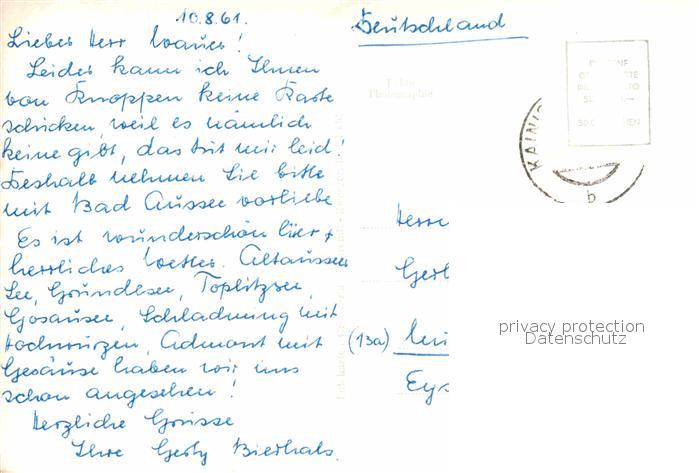 10.8.61.
Lieber Herr Wauer!
Leider kann ich Ihnen
von Knoppen keine Karte
schicken, weil es nämlich
keine gibt, das tut mir leid!
Deshalb nehmen Sie bitte
mit Bad Aussee vorliebe
Es ist wunderschön hier +
herrliches Wetter. Altausseer
See, Grundlsee, Toplitzsee,
Gosausee, Schladming mit
Hochwurzen, Admont mit
Gesäuse haben wir uns
schon angesehen!
Herzliche Grüsse
Ihre Gerty Bierhals.
Deutschland
Photographie
KAINI
b
Herrn
Gerh
(13a) Mü
Eys
privacy protection
Datenschutz